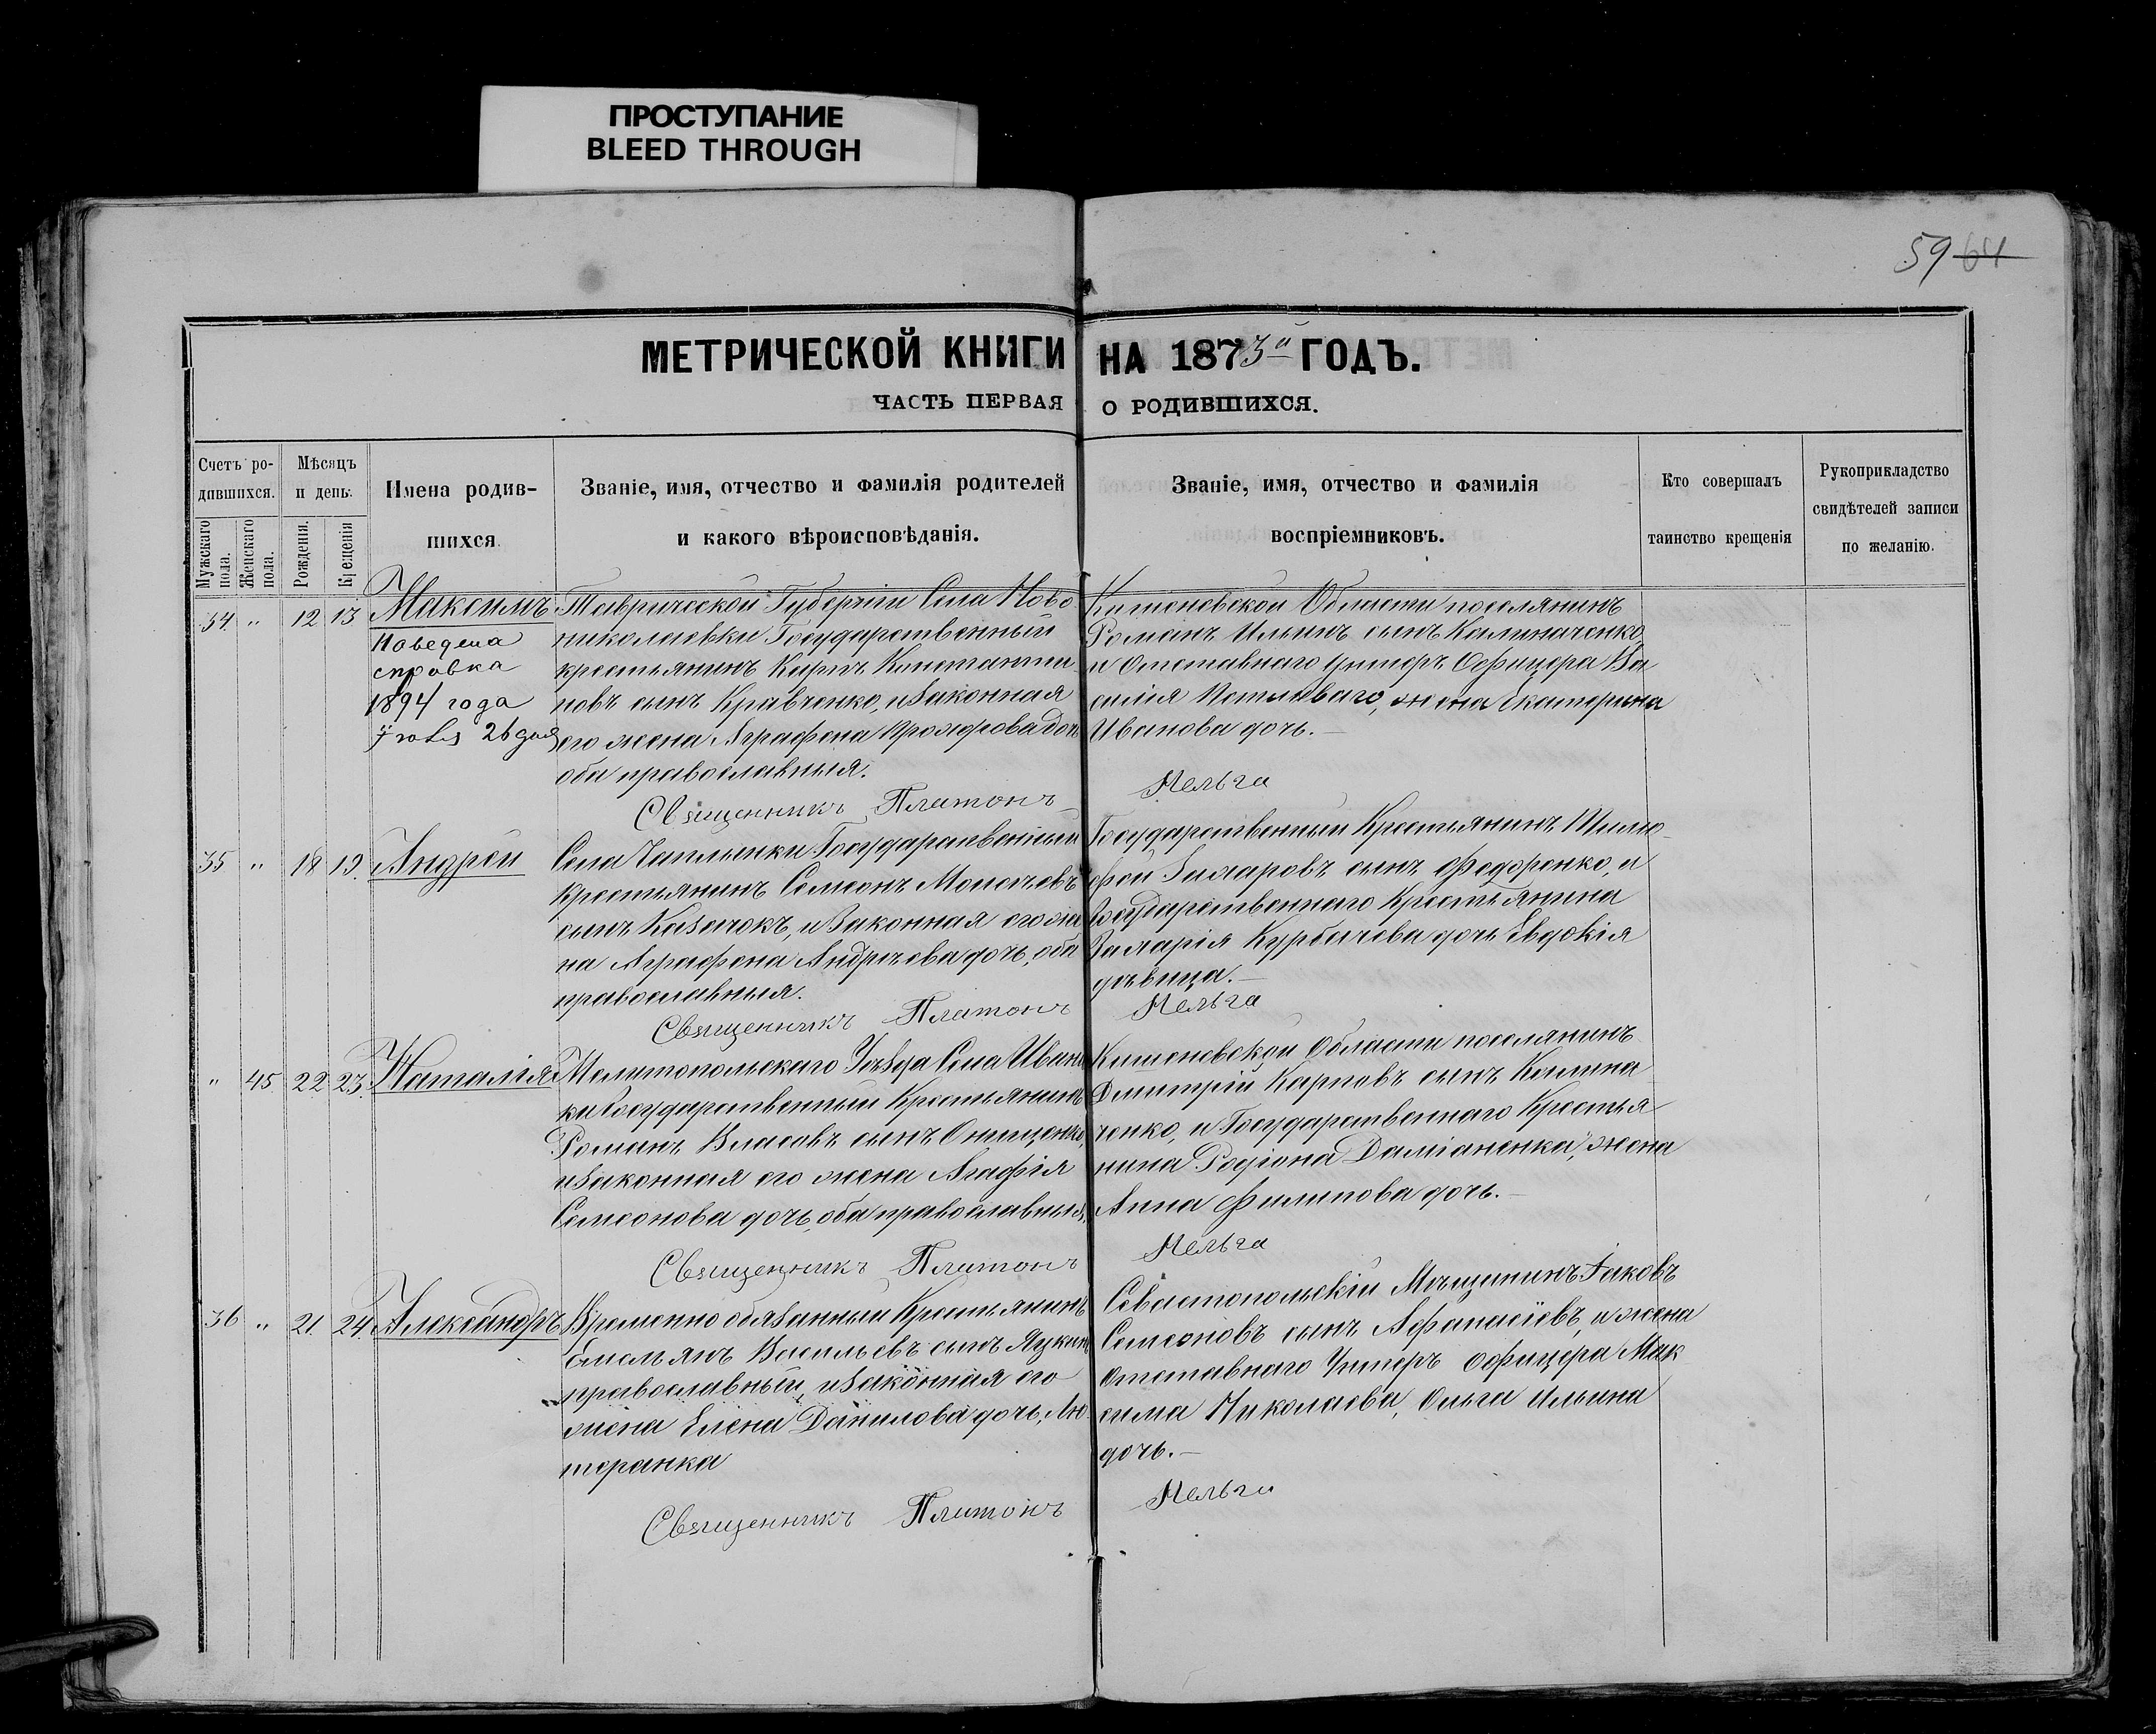 ПРОСТУПАНИЕ
BLEED THROUGH
59 61
МЕТРИЧЕСКОЙ КНИГИ НА 1873й ГОДЪ.
ЧАСТЬ ПЕРВАЯ О РОДИВШИХСЯ.
Счетъ ро-
дившихся.
Мужскаго пола.
Женскаго пола.
Мѣсяцъ
и день.
Рожденія.
Крещенія
Имена родив-
шихся.
Званіе, имя, отчество и фамилія родителей
и какого вѣроисповѣданія.
Званіе, имя, отчество и фамилія
воспріемниковъ.
Кто совершалъ
таинство крещенія
Рукоприкладство
свидѣтелей записи
по желанію.
34. " 12 13 Максимъ
Наведена
справка
1894 года
26 дня
Таврической Губерніи Села Ново
николаевки Государственный
крестьянинъ Карпъ Константи
новъ сынъ Кравченко, и законная
его жена Аграфена дочь
оба православныя.
Священникъ Платонъ
Кишеневской Области поселянинъ
Романъ Ильинъ сынъ Калиначенко,
и Отставнаго Унтеръ Офицера Ва
силія жена Екатерина
Иванова дочь.-
Мельга
35 " 18 19. Андрей
Села Чаплынки Государственный
Крестьянинъ Семеонъ
сынъ Казачокъ, и Законная его же
на Аграфена Андреева дочь, оба
православныя.
Священникъ Платонъ
Государственный Крестьянинъ Тимо-
фей сынъ Федоренко, и
Государственнаго Крестьянина
Иларія Курбачева дочь Евдокія
дѣвица.-
Мельга
" 45. 22 23. Наталія
Мелитопольскаго Уѣзда Села Иванов
ки Государственный Крестьянинъ
Романъ Власовъ сынъ Онищенко,
и законная его жена Агафія
Семеонова дочь, оба православныя.
Священникъ Платонъ
Кишеневской Области поселянинъ
Дмитрій Карповъ сынъ Калина
ченко, и Государственнаго Крестья
нина Родіона Даміаненка, жена
Анна Филипова дочь.-
Мельга
36 " 21. 24. Александръ
Временно обязанный Крестьянинъ
Емельянъ Васильевъ сынъ
православный, и законная его
жена Елена Данилова дочь, Лю
теранка
Священникъ Платонъ
Севастопольскій Мѣщанинъ Іаковъ
Семеоновъ сынъ Афанасіевъ, и жена
Отставнаго Унтеръ офицера Мак
сима Николаева, Ольга Ильина
дочь.-
Мельга